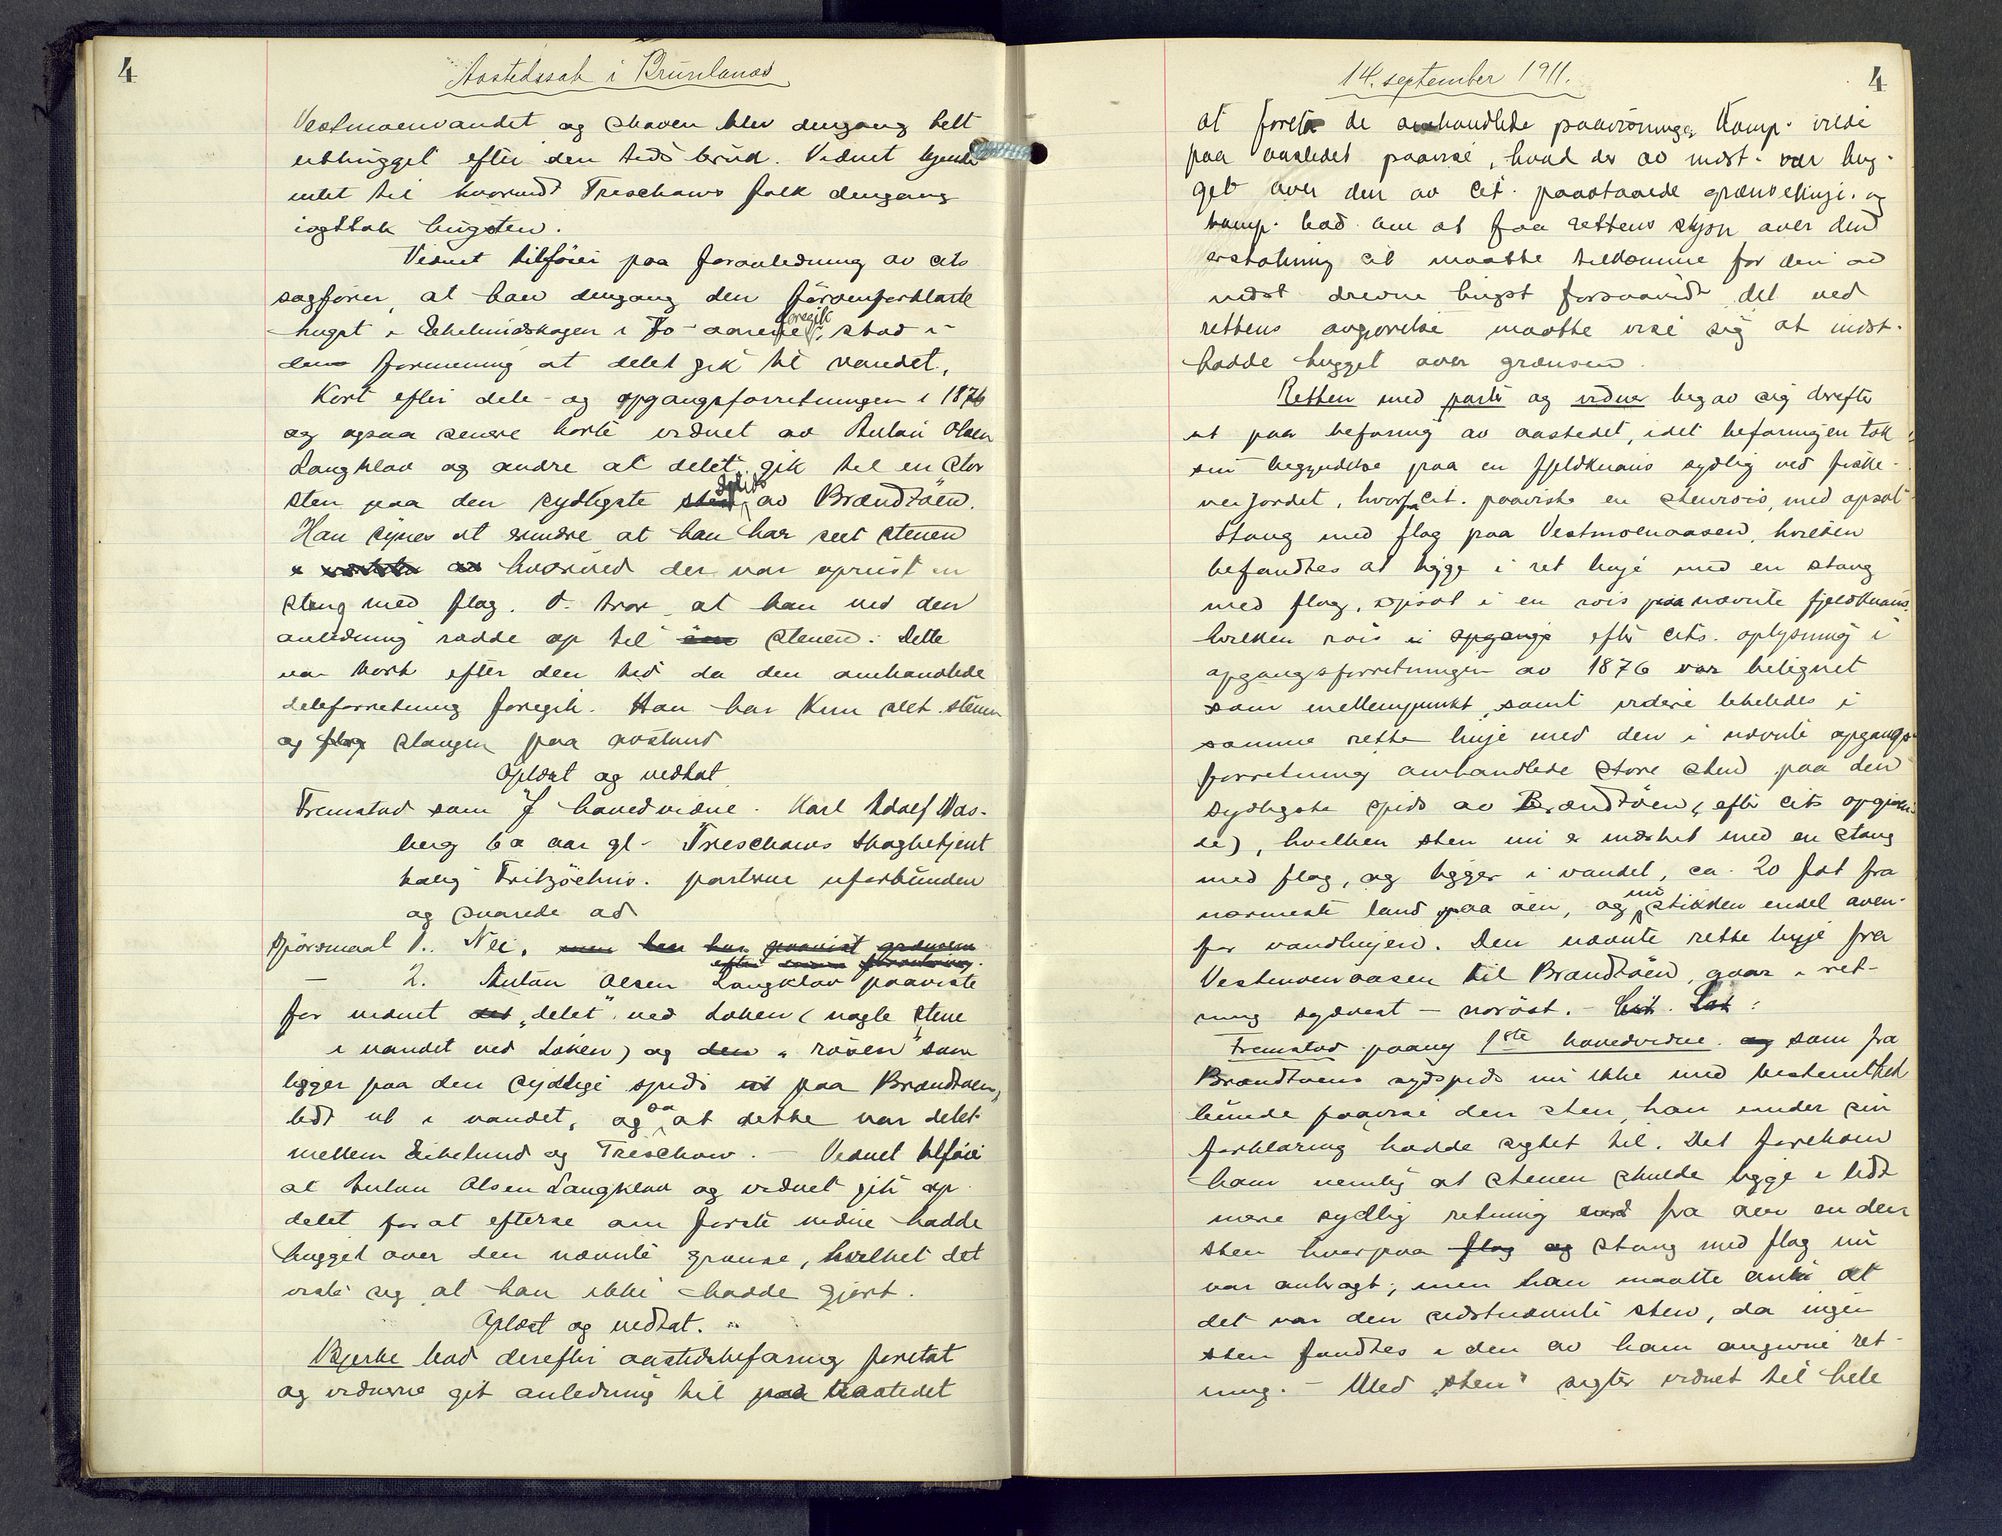 4
Aastedssak i Brunlanes
Vestmoenvandet og skoven blev dengang helt
uthugget efter den tids bruk. Vidnet kjender
intet til hvorvidt Treschows folk dengang
iagttok hugsten.
Vidnet tilføier paa foranledning av cits
sagfører, at han dengang den føromforklarte
hugst i Eikelundskogen i 70-aarene foregik, stod i
den formening at delet gik til vandet.
Kort efter dele- og opgangsforretningen i 1876
og ogsaa senere hørte vidnet av Anton Olsen
Langklov og andre at delet gik til en stor
sten paa den sydligste spids av Brændtøen.
Han synes at erindre at han har seet stenen
hvorved der var opreist en
stang med flag. V. tror at han ved den
anledning rodde op til stenen. Dette
var kort efter den tid da den omhandlede
deleforretning foregik. Han har kun seet stenen
og flag stangen paa avstand
Oplæst og vedtat
Fremstod som 7 hovedvidne. Karl Adolf Aas-
berg 60 aar gl. Treschows skogbetjent
bolig Fritzöehus. parterne uforbunden
og svarede ad
Spørsmaal 1. Nei, men han har paavist grænsen
efter forklaring
— 2. Anton Olsen Langklov paaviste
for vidnet det "delet" ved Loken (nogle stene
i vandet ved Loken) og den "røisen" som
ligger paa den sydlige spids ut paa Brændtøen,
lidt ut i vandet, og sa at dette var delet
mellem Eikelund og Treschow. — Vidnet tilføier
at Anton Olsen Langklov og vidnet gik op
delet for at efterse om første vidne hadde
hugget over den nævnte grænse, hvilket det
viste sig at han ikke hadde gjort.
Oplæst og vedtat.
Bjerke bad derefter aastedsbefaring foretat
og vidnerne git anledning til paa aastedet
14. september 1911.
4
at foreta de omhandlede paavisninger Komp. vilde
paa aastedet paavise, hvad der av indst. var hug-
get over den av cit. paastaaede grænselinje. og
komp. bad om at faa rettens skjøn over den
erstatning cit maatte tilkomme for den av
indst drevne hugst forsaavidt det ved
rettens avgjørelse maatte vise sig at indst.
hadde hugget over grænsen.
Retten med parter og vidner begav sig derefter
ut paa befaring av aastedet, idet befaringen tok
sin begyndelse paa en fjeldknaus sydlig ved fiske-
verjordet, hvorfra cit. paaviste en stenrøis, med opsat
stang med flag paa Vestmoenaasen, hvilken
befandtes at ligge i ret linje med en stang
med flag, opsat i en røis paa nævnte fjeldknaus,
hvilken røis i opgangs efter cits. oplysning i
opgangsforretningen av 1876 var betegnet
som mellempunkt, samt videre likeledes i
samme rette linje med den i nævnte opgangs-
forretning omhandlede store sten paa den
sydligste spids av Brændtøen, (efter cits opgivel-
se), hvilken sten nu er merket med en stang
med flag, og ligger i vandet, ca. 20 fot fra
nærmeste land paa øen, og nu stikker endel oven-
for vandlinjen. Den nævnte rette linje fra
Vestmoenaasen til Brændtøen, gaar i ret-
ning sydvest — nordøst. — Cit. Lot :
Fremstod paany 1ste hovedvidne og som fra
Brændtøens sydspids nu ikke med bestemthet
kunde paavise den sten, han under sin
forklaring hadde sigtet til. Det forekom
ham nemlig at stenen skulde ligge i lidt
mere sydlig retning fra øen en den
sten hvorpaa flag og stang med flag nu
var anbragt; men han maatte anta at
det var den sidstnævnte sten, da ingen
sten fandtes i den av ham angivne ret-
ning. — Med "sten" sigter vidnet til hele